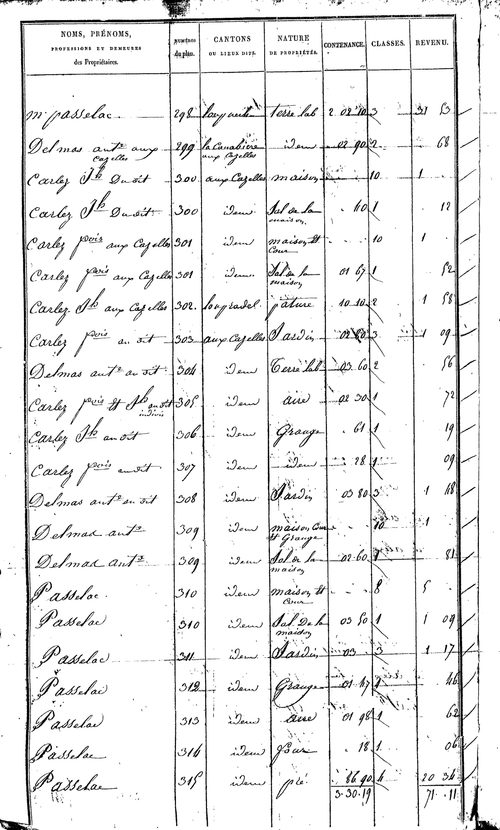 NOMS, PRÉNOMS, PROFESSIONS ET DEMEURES des Propriétaires. NUMÉRO du plan. CANTONS OU LIEUX DITS. NATURE DE PROPRIÉTÉS. CONTENANCE. CLASSES. REVENU.
mr passelac. 298 terre lab 2 02 10 3 31 53
Delmas ante aux Cazelles 299 la Canabière aux Cazelles idem 02 90 2 68
Carlez Jh Du dit 300 aux Cazelles maison 10 1
Carlez Jh Du dit 300 idem Sol de la maison 60 1 12
Carlez fcois aux Cazelles 301 idem maison et Cour 10 1
Carlez fcois aux Cazelles 301 idem Sol de la maison 01 67 1 52
Carlez Jh aux Cazelles 302 lou pradel pâture 10 10 2 1 58
Carlez fcois au dit 303 aux Cazelles Jardin 02 80 3 1 09
Delmas ante au dit 304 idem Terre lab 03 60 2 56
Carlez fcois et Jh au dit indivis 305 idem aire 02 30 1 72
Carlez Jh au dit 306 idem Grange 61 1 19
Carlez fcois au dit 307 idem idem 28 1 09
Delmas ante au dit 308 idem Jardin 03 80 3 1 48
Delmas ante 309 idem maison Cour et Grange 10 1
Delmas ante 309 idem Sol de la maison 02 60 1 81
Passelac 310 idem maison et Cour 8 5
Passelac 310 idem Sol De la maison 03 50 1 1 09
Passelac 311 idem Jardin 03 3 1 17
Passelac 312 idem Grange 01 47 1 46
Passelac 313 idem aire 01 98 1 62
Passelac 314 idem four 18 1 06
Passelac 315 idem pré 86 90 4 20 34
3 30 19 71 11